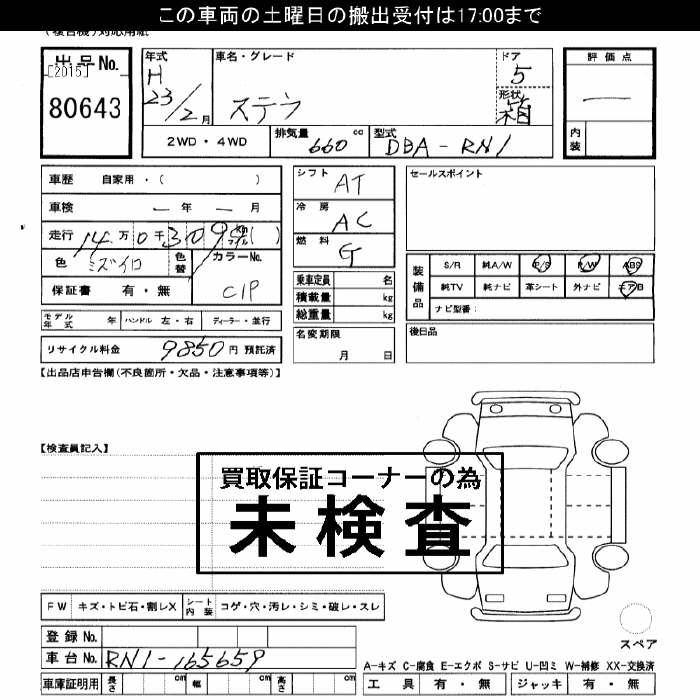 この車両の土曜日の搬出受付は17:00まで
出品No.
[2015]
80643
年式
H
23/2月
車名・グレード
ステラ
ドア
5
形状
箱
2WD・4WD
排気量
660 cc
型式
DBA-RN1
評価点
―
内装
車歴 自家用・( )
車検 ― 年 ― 月
走行 14万0千309 Km マイル ( )
色 ミズイロ
色替
カラーNo.
C1P
保証書 有・無
モデル年式 年
ハンドル 左・右
ディーラー・並行
リサイクル料金 9850 円 預託済
シフト
AT
冷房
AC
燃料
G
乗車定員 名
積載量 kg
総重量 kg
名変期限
月 日
セールスポイント
装備品
S/R 純A/W P/S P/W ABS
純TV 純ナビ 革シート 外ナビ エアB
ナビ型番:
後日品
【出品店申告欄(不良箇所・欠品・注意事項等)】
【検査員記入】
買取保証コーナーの為
未検査
FW キズ・トビ石・割レX
シート内装
コゲ・穴・汚レ・シミ・破レ・スレ
登録No.
車台No. RN1-165659
車庫証明用 長さ cm 幅 cm 高さ cm
スペア
A-キズ C-腐食 E-エクボ S-サビ U-凹ミ W-補修 XX-交換済
工具 有・無 ジャッキ 有・無